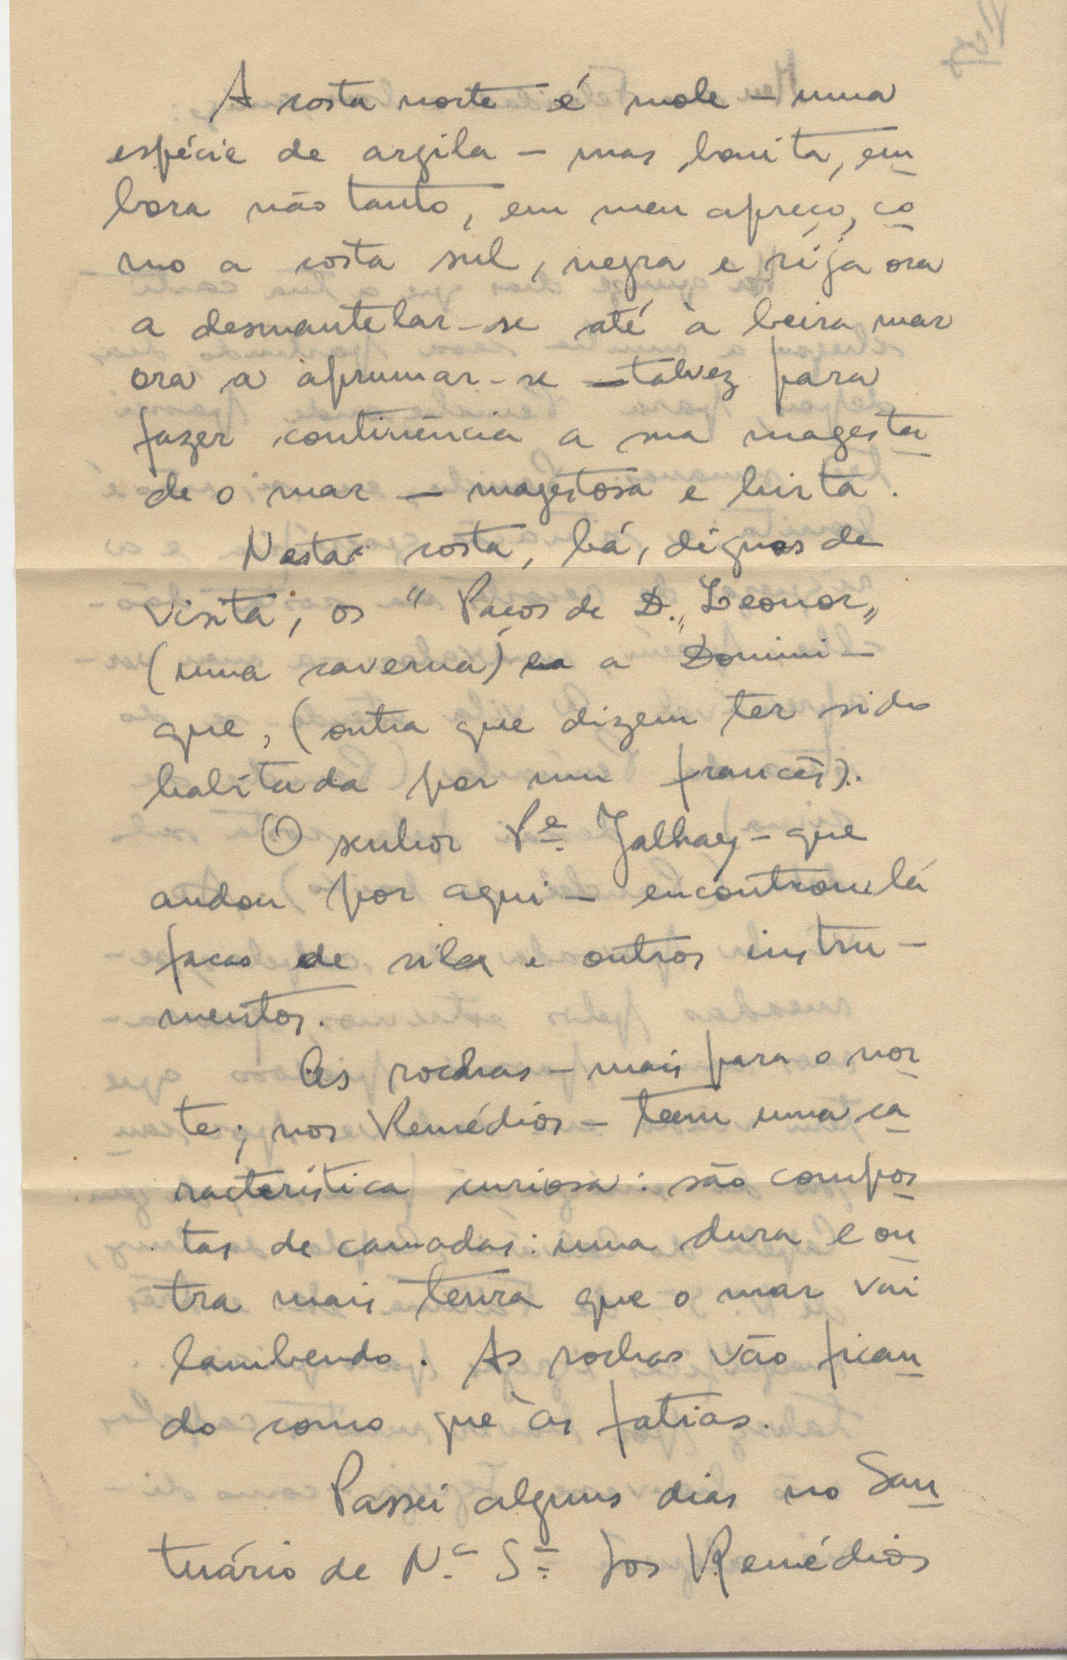 A costa norte é mole - uma
espécie de argila - mas bonita, em
bora não tanto, em meu apreço, co
mo a costa sul, negra e rija ora
a desmantelar-se até à beira mar
ora a aprumar-se - talvez para
fazer continência a sua magesta
de o mar - magestosa e hirta.
Nesta costa, há, dignos de
visita, os "Paços de D. "Leonor„
(uma caverna) e a Domini-
que, (outra que dizem ter sido
habitada por um francês).
O senhor Pe. Jalhay - que
andou por aqui - encontrou lá
facas de silex e outros instru-
mentos.
As rochas - mais para o nor
te, nos Remédios - teem uma ca
racterística curiosa: são compos
tas de camadas: uma dura e ou
tra mais tenra que o mar vai
lambendo. As rochas vão fican
do como que às fatias.
Passei alguns dias no San
tuário de Na. Sa. dos Remédios